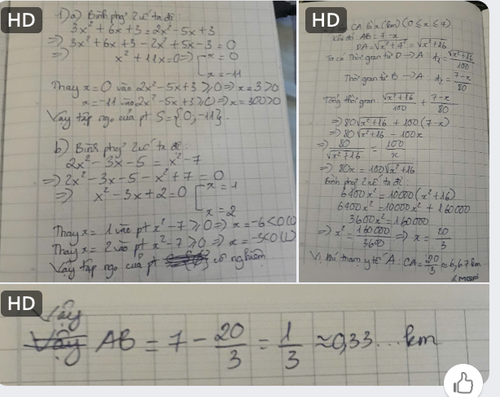 HD
1) a) Bình phg 2 vế ta đc
3x² + 6x + 3 = 2x² - 5x + 3
=> 3x² + 6x + 3 - 2x² + 5x - 3 = 0
=> x² + 11x = 0 => x = 0
x = -11
Thay x = 0 vào 2x² - 5x + 3 ≥ 0 => x = 3 > 0
x = -11 vào 2x² - 5x + 3 ≥ 0 => x = 300 > 0
Vậy tập ngo của pt S = {0, -11}
b) Bình phg 2 vế ta đc:
2x² - 3x - 5 = x² - 7
=> 2x² - 3x - 5 - x² + 7 = 0
=> x² - 3x + 2 = 0 x = 1
x = 2
Thay x = 1 vào pt x² - 7 ≥ 0 => x = -6 < 0 (L)
Thay x = 2 vào pt x² - 7 ≥ 0 => x = -3 < 0 (L)
Vậy tập ngo của pt vô nghiệm
HD
CA là x (km) (0 ≤ x ≤ 7)
AB = 7 - x
DA = √x² + 4² = √x² + 16
Ta có Thời gian từ D -> A t₁ = √x² + 16 / 100
Thời gian từ B -> A t₂ = 7 - x / 80
Tổng thời gian: √x² + 16 / 100 + 7 - x / 80
=> 80√x² + 16 + 100(7 - x)
=> 80√x² + 16 - 100x
=> 80 / √x² + 16 = 100 / x
=> 80x = 100√x² + 16
Bình phg 2 vế ta đc
6400x² = 10000(x² + 16)
6400x² = 10000x² + 160000
3600x² = 160000
=> x² = 160000 / 3600 => x = 20 / 3
Vị trí trạm y tế A: CA = 20 / 3 ≈ 6,67 km
HD
Vậy
AB = 7 - 20 / 3 = 1 / 3 ≈ 0,33... km